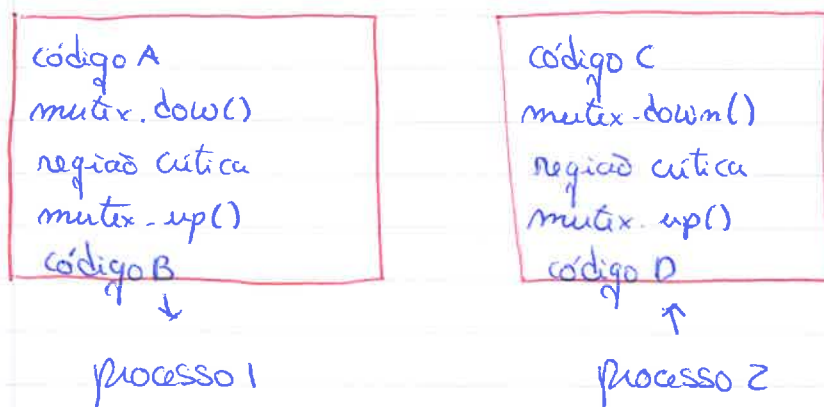 código A
mutex.dow()
região crítica
mutex.up()
código B
processo 1
código C
mutex.down()
região crítica
mutex.up()
código D
processo 2